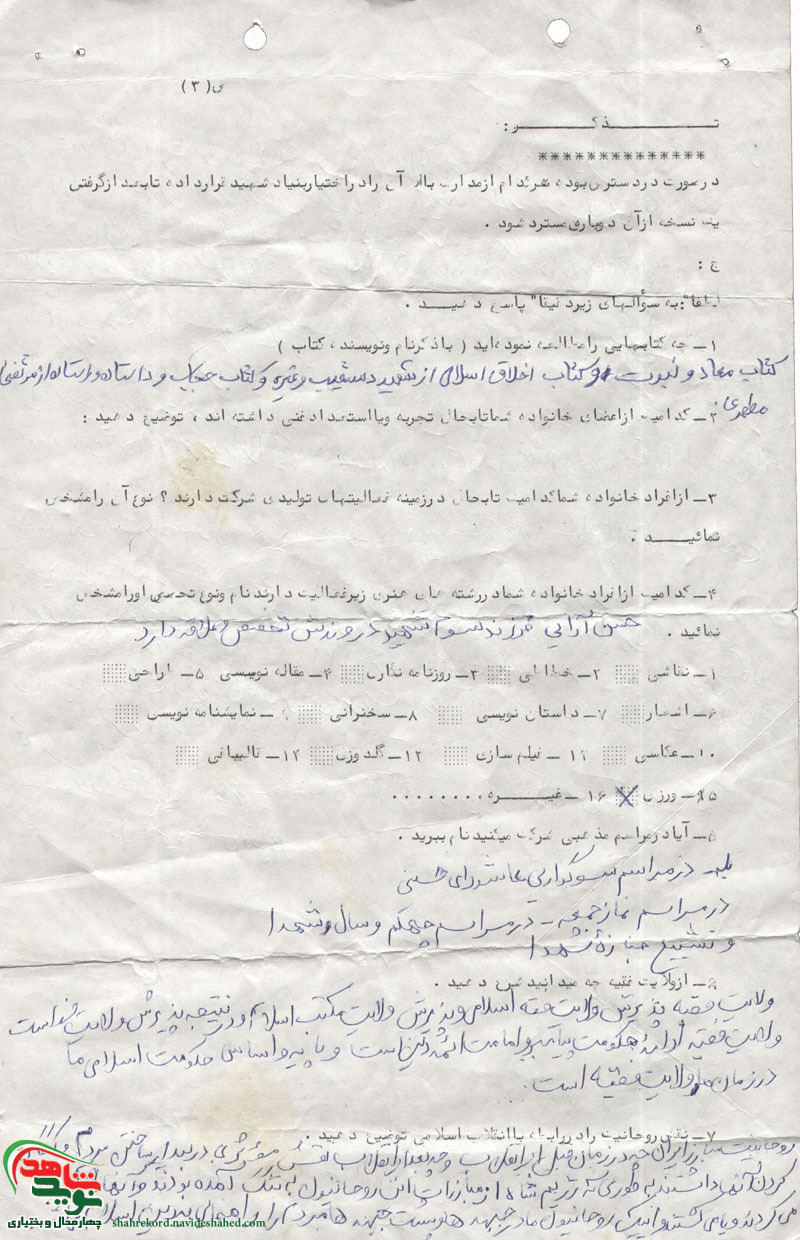 ص (۳)
تــــــذكــــــر :
**************
درصورت دردسترس بوده هركدام ازمدارك بالا آن رادراختياربنياد شهيد قرارداده تابعد ازگرفتن
يك نسخه ازآن دوباره مسترد شود .
ج :
لطفا" به سؤالهای زيردقيقا" پاسخ دهيــــد .
۱ــ چه كتابهايی رامطالعه نموده ايد ( باذكرنام ونويسنده كتاب )
كتاب معاد و نبوت و كتاب اخلاق اسلامی از شهيد دستغيب و غيره و كتاب حجاب و داستان راستان از مرتضی
مطهری
۲ــ كداميك ازاعضای خانواده شماتابحال تجربه ويااستعدادفنی داشته اند ، توضيح دهيد :
۳ــ ازافراد خانواده شماكداميك تابحال درزمينه فعاليتهای توليدی شركت دارند ؟ نوع آن رامشخص
نمائيــــد .
۴ــ كداميك ازافراد خانواده شمادررشته های هنری زيرفعاليت دارندنام ونوع تخصص اورامشخص
نمائيد . حسن آرايی فرزند سوم شهيد در ورزش تخصص و علاقه دارد
۱ــ نقاشی ۲ــ خطاطی ۳ــ روزنامه نگاری ۴ــ مقاله نويسی ۵ــ طراحی
۶ــ اشعار ۷ــ داستان نويسی ۸ــ سخنرانی ۹ــ نمايشنامه نويسی
۱۰ــ عكاسی ۱۱ــ فيلم سازی ۱۲ــ گلدوزی ۱۴ــ قاليبافی
۱۵ــ ورزش ۱۶ــ غيــــره ........
۵ــ آيادرمراسم مذهبی شركت ميكنيد نام ببريد .
بله - در مراسم سوگواريی عاشورای حسينی
در مراسم نماز جمعه - در مراسم چهلم و سال شهدا
و تشييع جنازه شهدا
۶ــ ازولايت فقيه چه ميدانيد شرح دهيد .
ولايت فقيه پذيرش ولايت فقه اسلامی و پذيرش ولايت مكتب اسلام و در نتيجه پذيرش ولايت خداست
ولايت فقيه ادامۀ حكومت پيامبر و امامت ائمه دين است و پايه و اساس حكومت اسلامی ما
در زمان ما ولايت فقيه است .
۷ــ نقش روحانيت رادررابطه باانقلاب اسلامی توضيح دهيد .
روحانيت مبارز ايران چه در زمان قبل از انقلاب و چه بعد از انقلاب نقش مؤثری در بيدار ساختن مردم و آگاه
كردن آنها داشتند به طوری كه رژيم شاه از مبارزات اين روحانيون به تنگ آمده بودند و آنها را
می كردند و يا می كشتند و اينك روحانيون ما در جبهه ها و پشت جبهه ها مردم را راهنمايی
نوید شاهد
چهارمحال و بختیاری
shahrekord.navideshahed.com